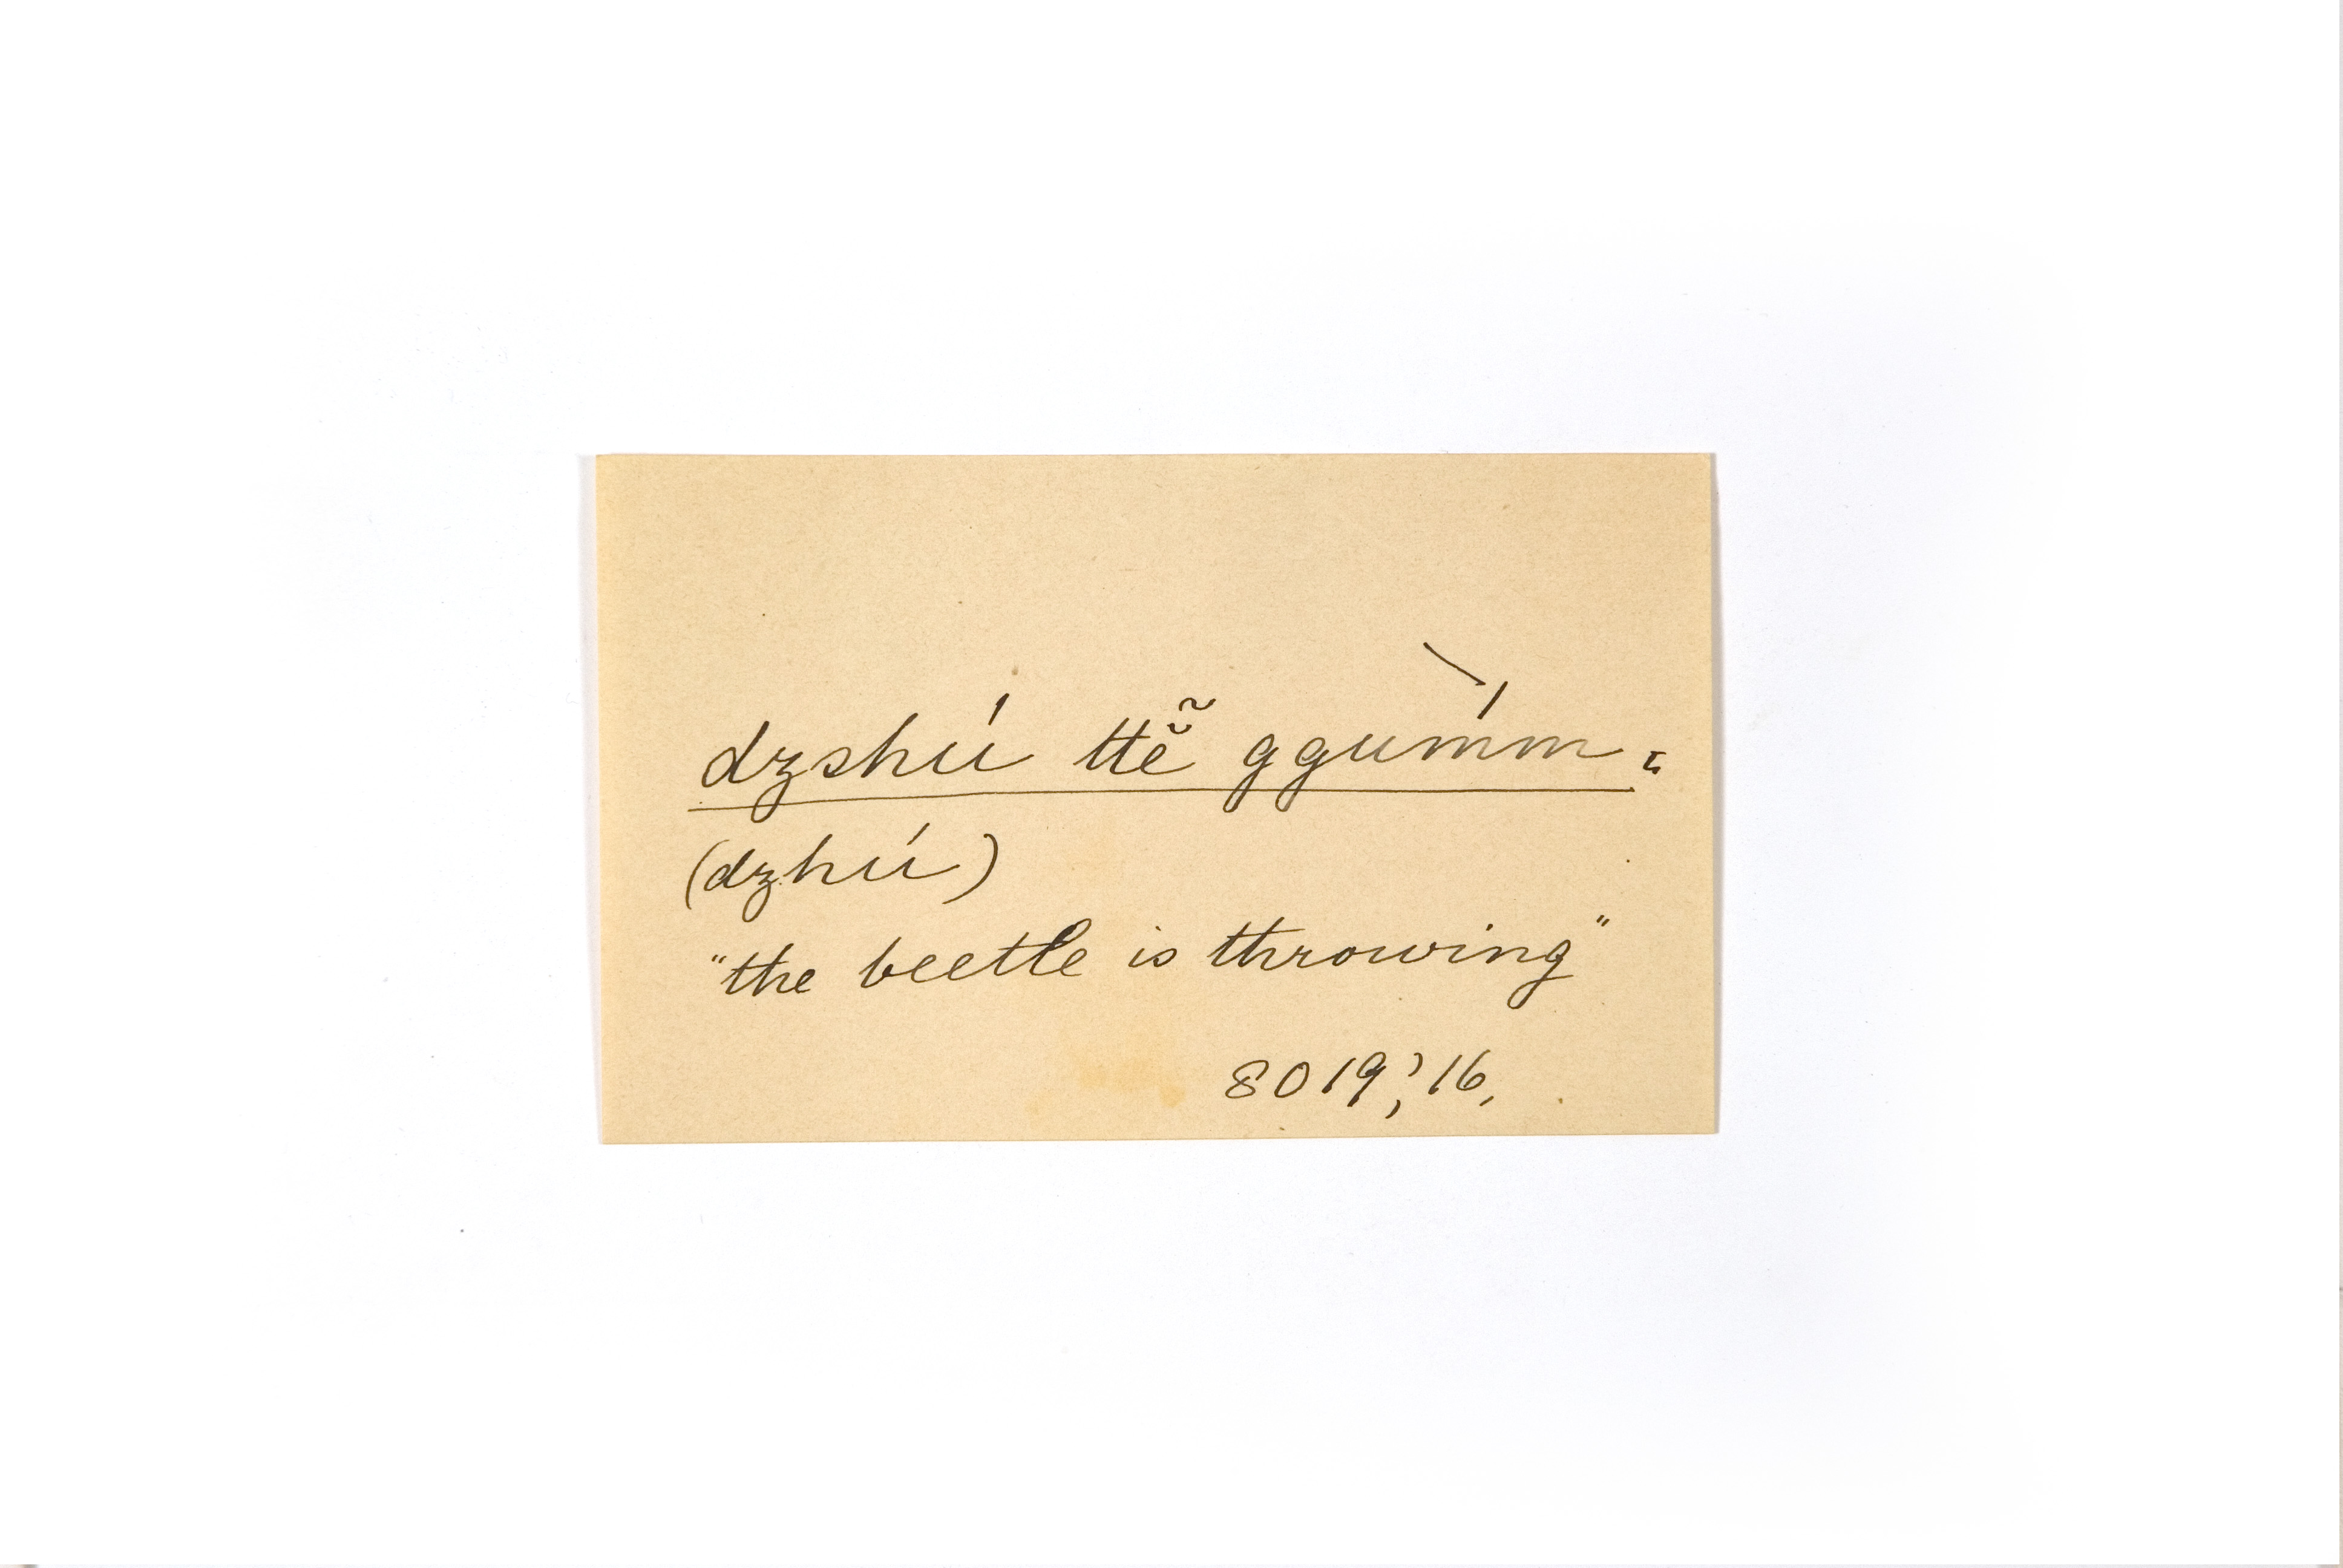 dzshú ttĕ̃ ggùḿm.
(dzhú)
"the beetle is throwing"
8019,' 16.